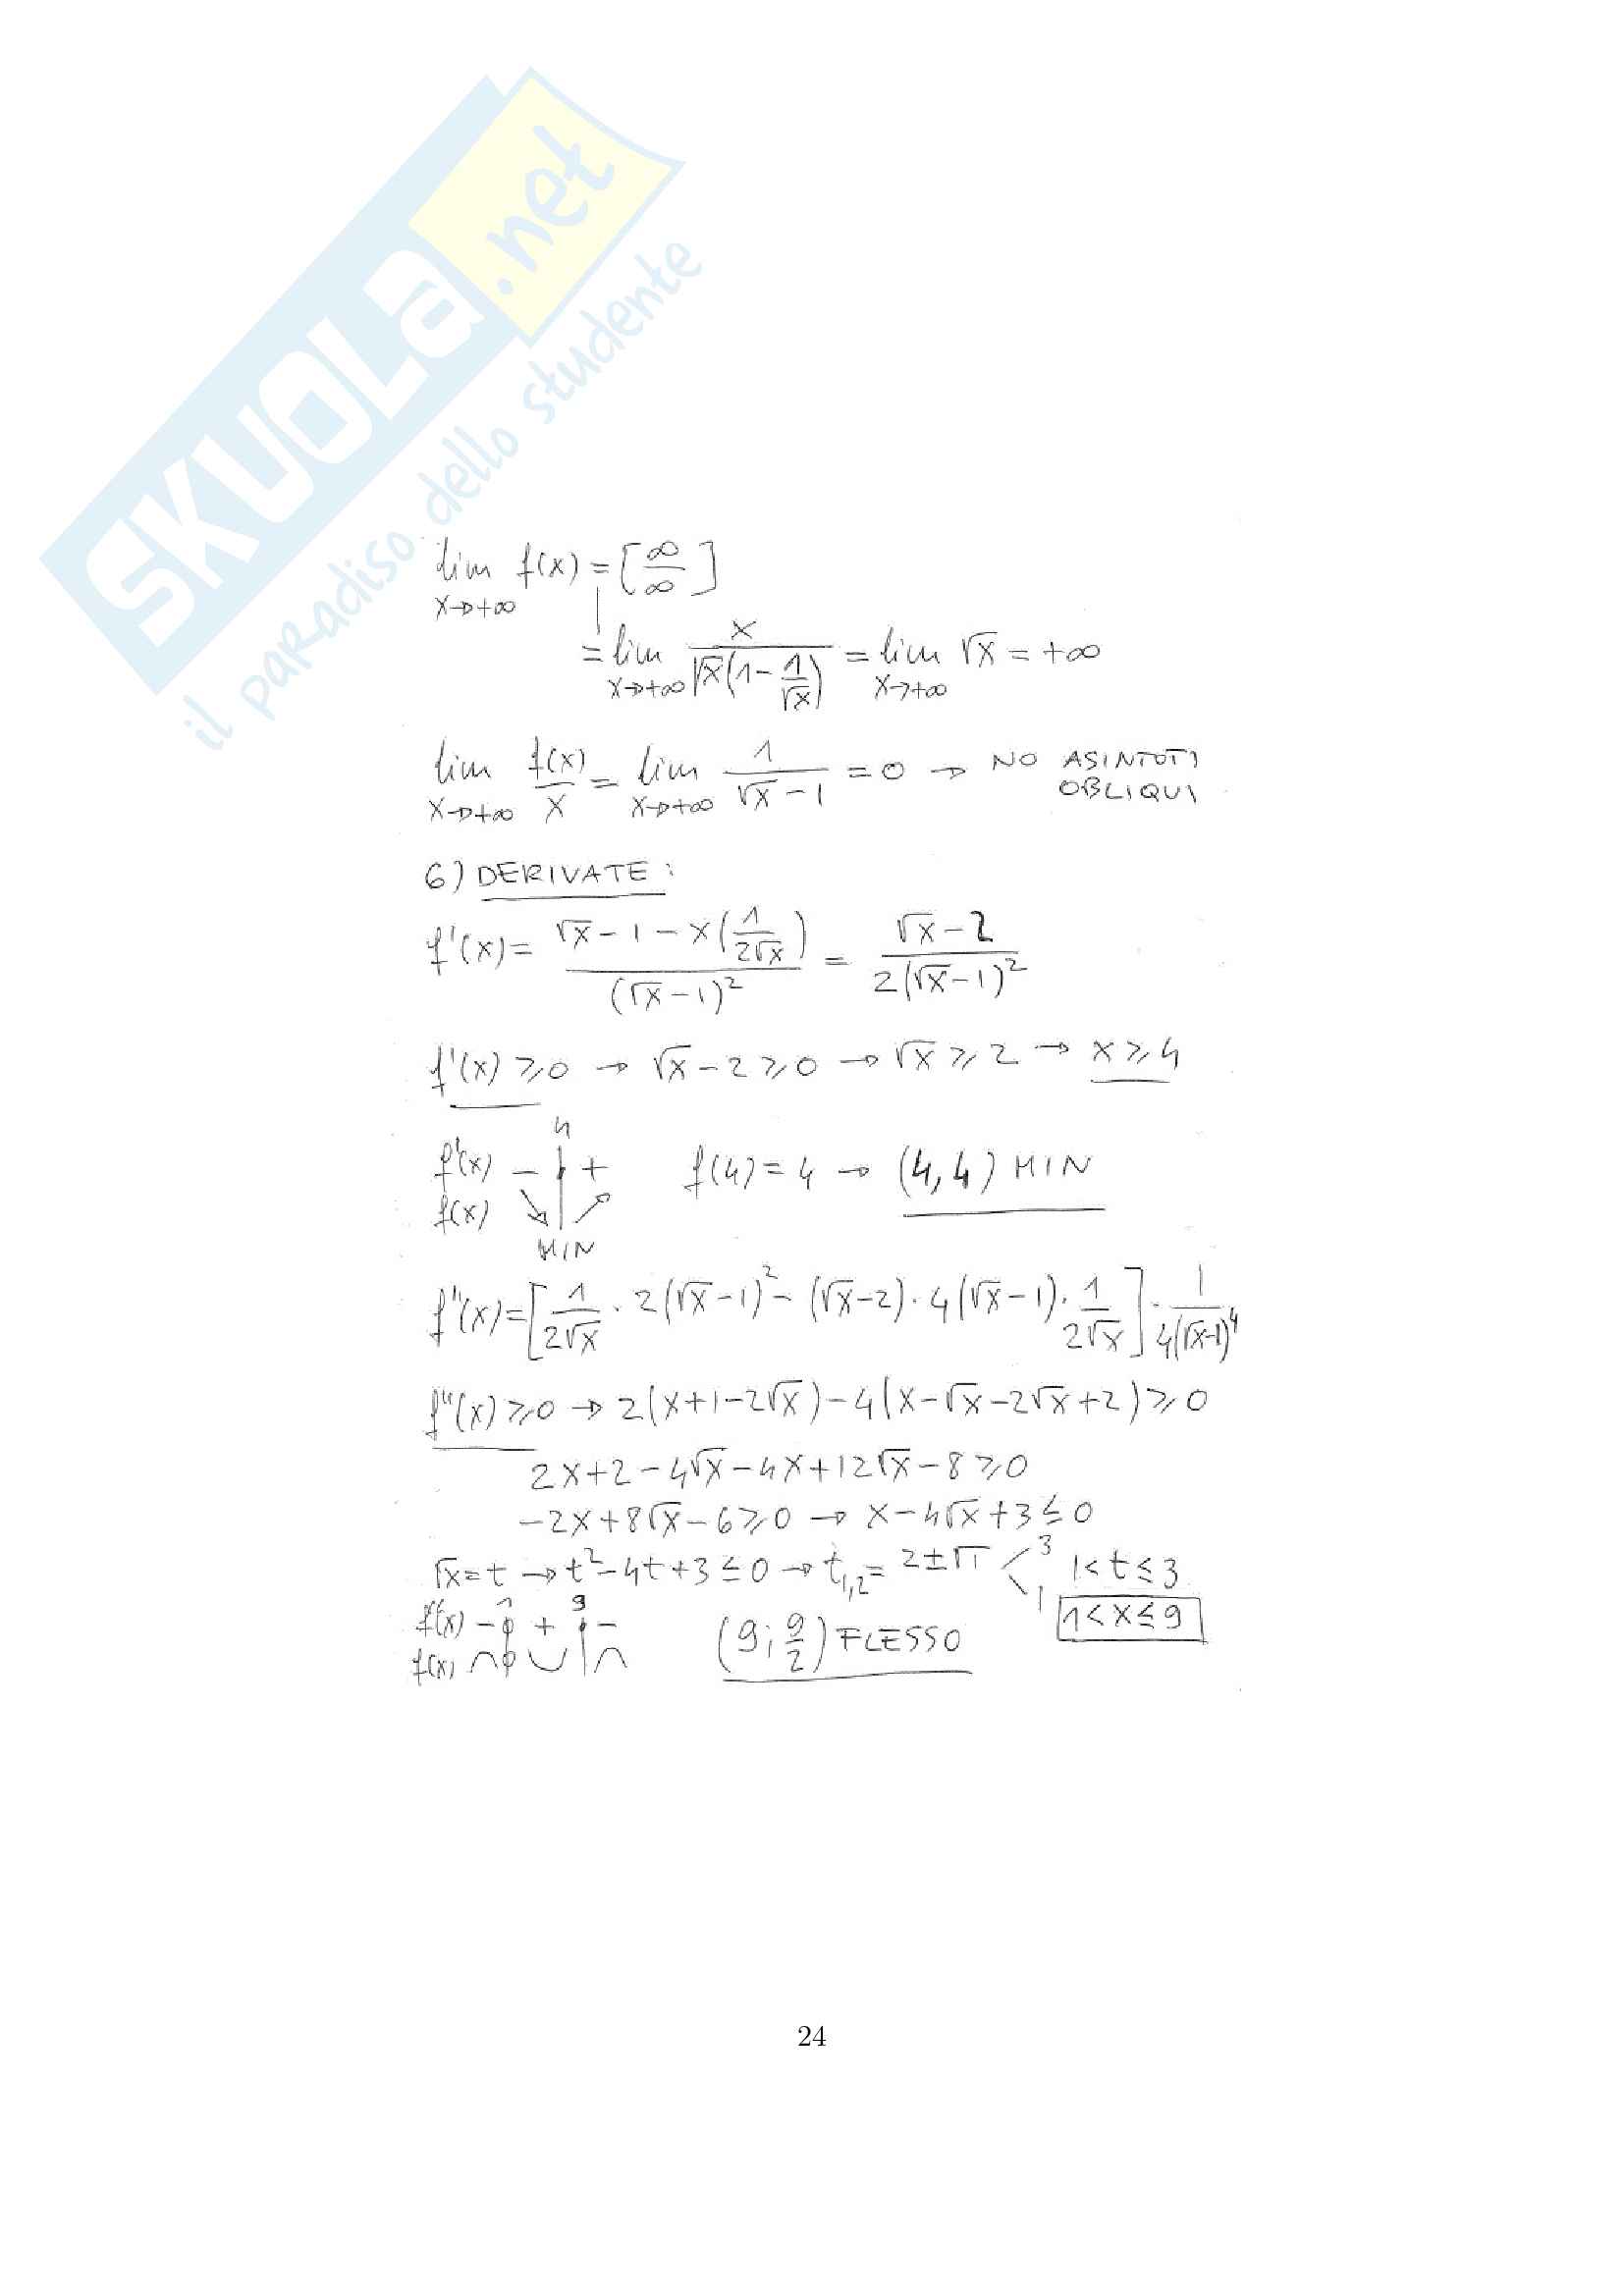 SKUOLA.net
il paradiso dello studente
lim x→+∞ f(x) = [∞/∞]
= lim x→+∞ x/(√x(1-1/√x)) = lim x→+∞ √x = +∞
lim x→+∞ f(x)/x = lim x→+∞ 1/(√x-1) = 0 → NO ASINTOTI
OBLIQUI
6) DERIVATE:
f'(x) = (√x-1-x(1/2√x))/(√x-1)² = (√x-2)/(2(√x-1)²)
f'(x) ≥ 0 → √x-2 ≥ 0 → √x ≥ 2 → x ≥ 4
4
f'(x) - + f(4) = 4 → (4,4) MIN
f(x) ↘ ↗
MIN
f''(x) = [1/(2√x) · 2(√x-1)² - (√x-2) · 4(√x-1) · 1/(2√x)] · 1/(4(√x-1)⁴)
f''(x) ≥ 0 → 2(x+1-2√x) - 4(x-√x-2√x+2) ≥ 0
2x+2-4√x-4x+12√x-8 ≥ 0
-2x+8√x-6 ≥ 0 → x-4√x+3 ≤ 0
√x = t → t²-4t+3 ≤ 0 → t1,2 = 2±√1 < 3 1 1 < t ≤ 3
1 9
f''(x) - + - 1 < x ≤ 9
f(x) ∩ ∪ ∩ (9; 9/2) FLESSO
24